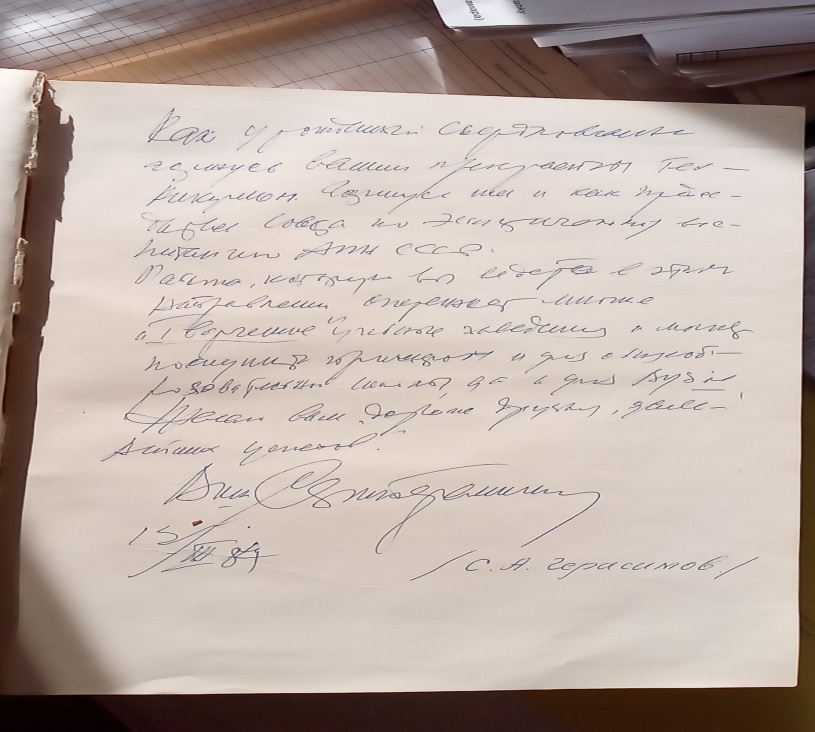 Как уроженец Свердловчанин
горжусь вашим прекрасным тех-
никумом. Горжусь им и как пред-
совета по эстетическому вос-
питанию АПН СССР.
Работа, которую вы ведете в этом
направлении опережает многие
"Творческие" учебные заведения и может
послужить примером и для общеоб-
разовательной школы, да и для Вузов
Желаю вам, дорогие друзья, даль-
нейших успехов!
Ваш
15/III 84
/С. А. Герасимов./